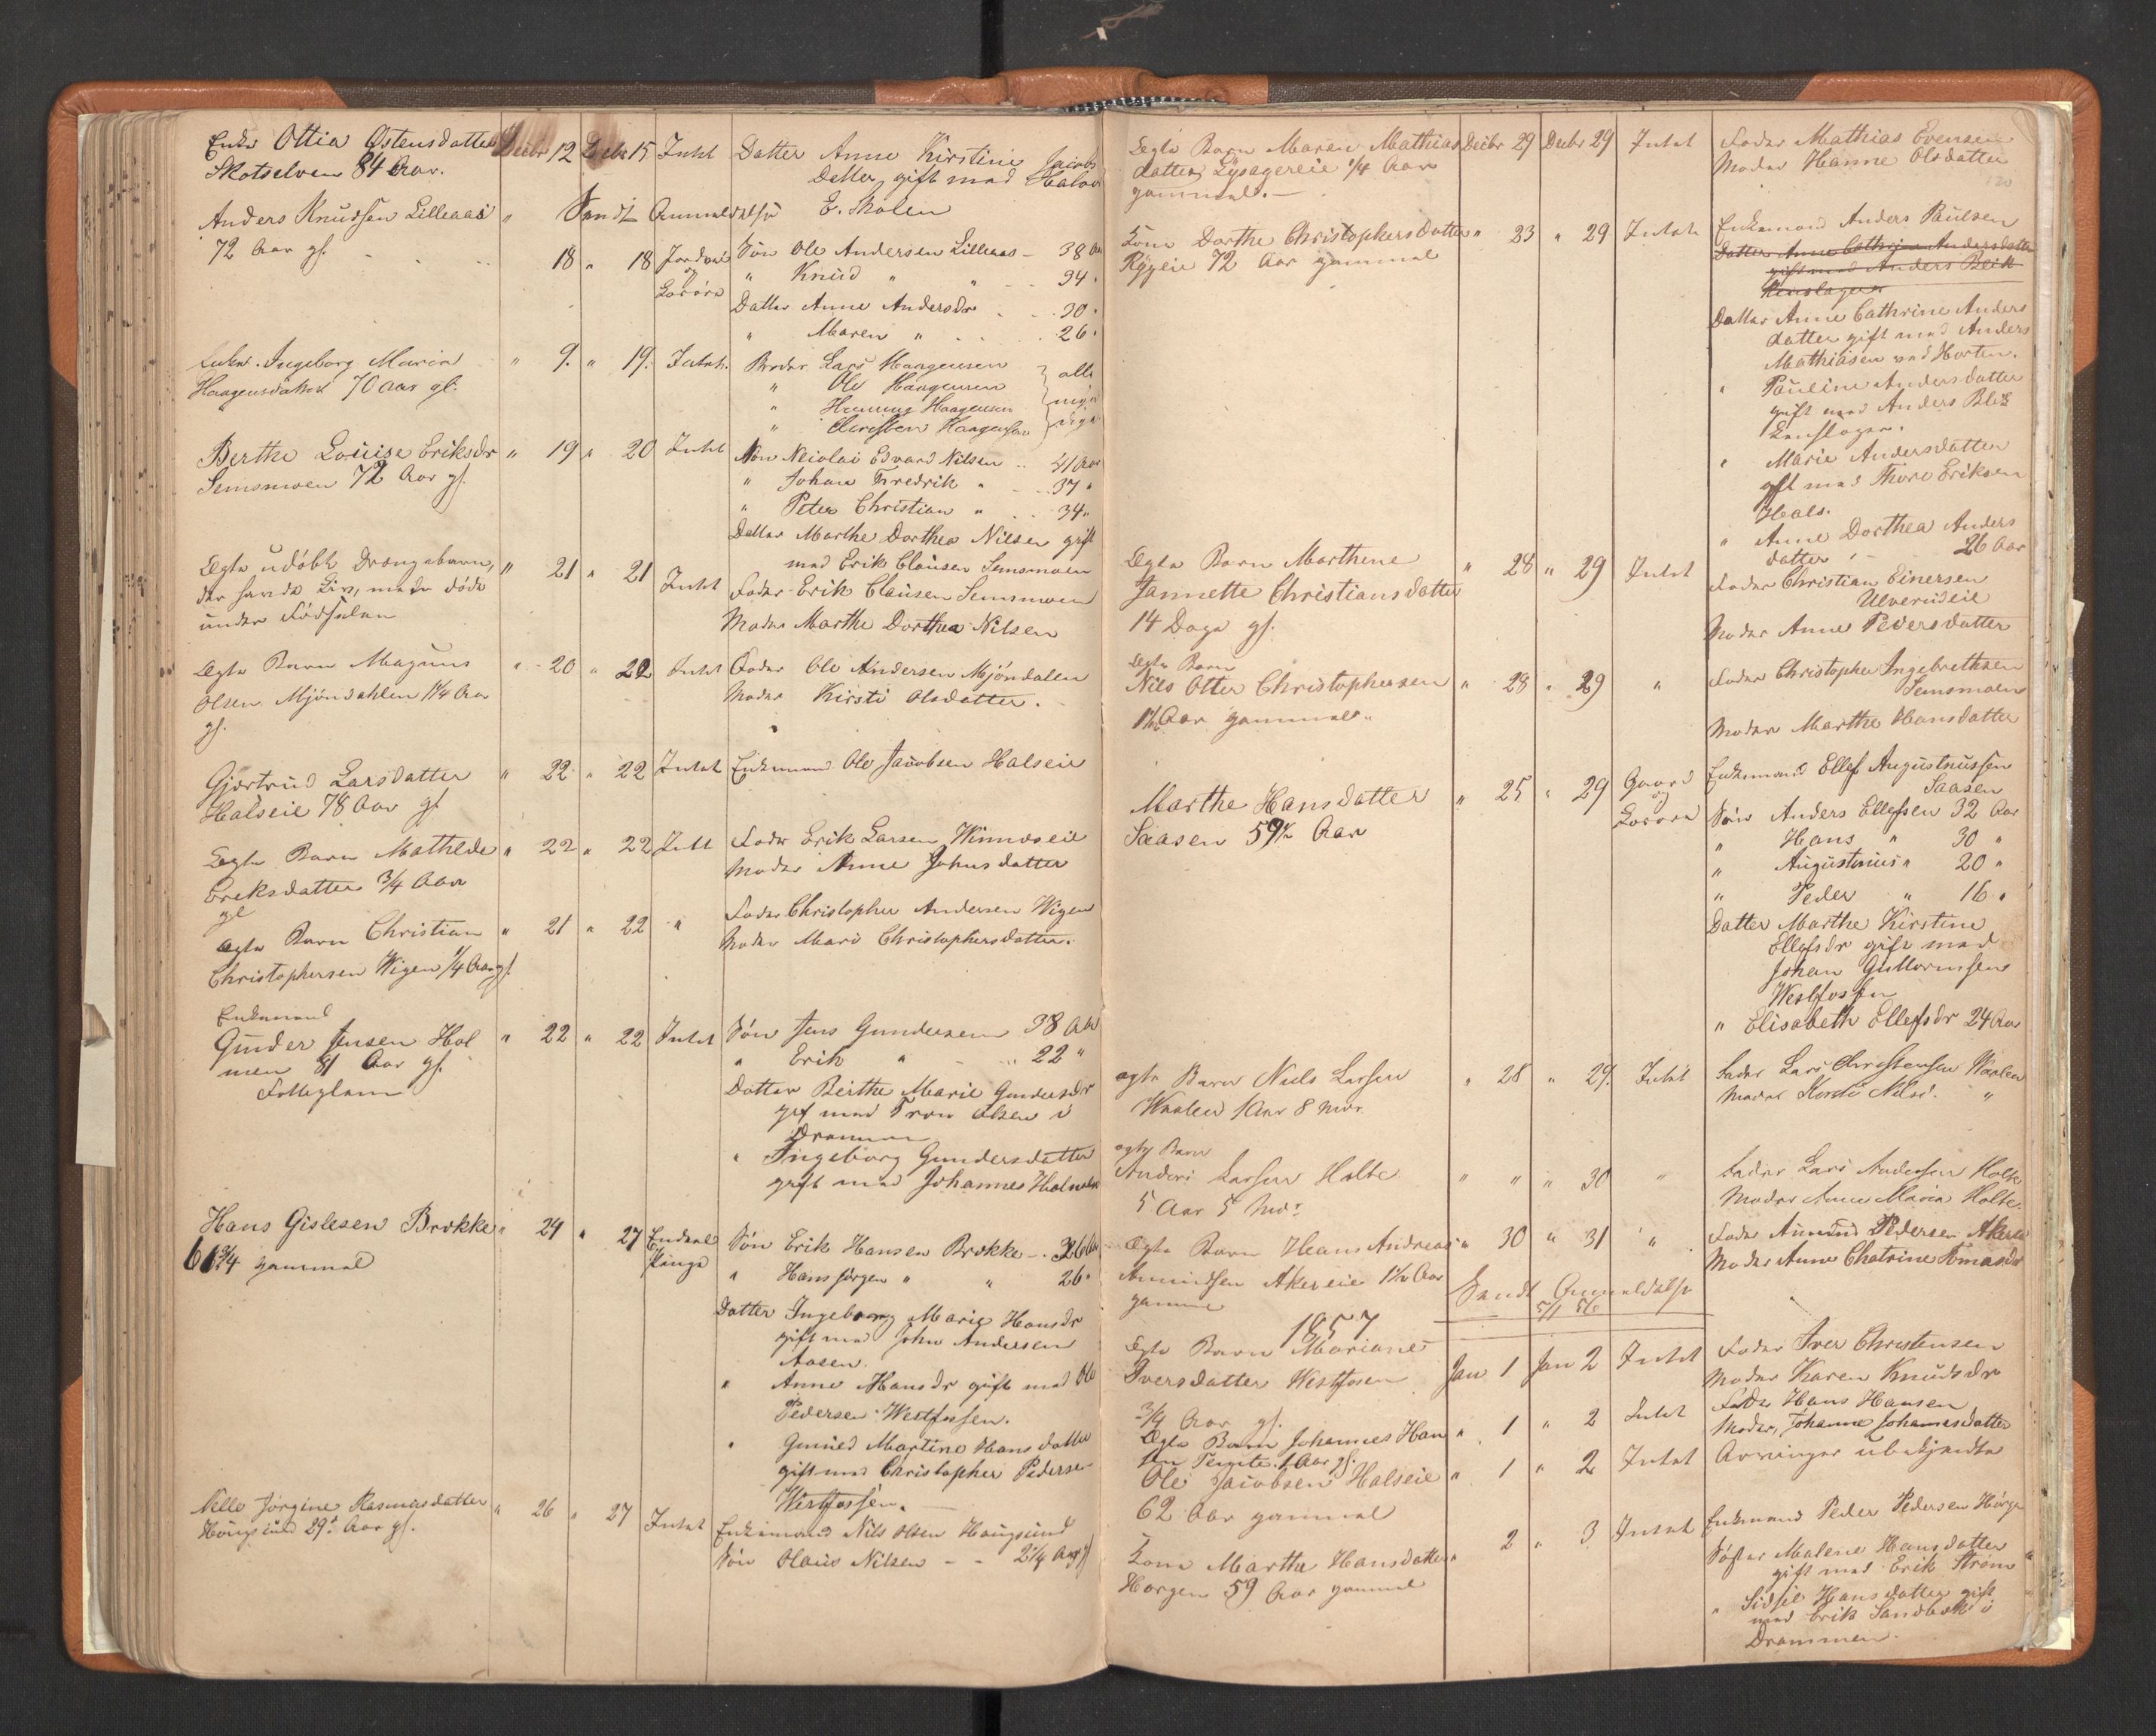 Enke Ottia Østensdatter Decbr 12 Decbr 15 Intet Datter Anne Kirstine Jacobs
Skotselven 84 Aar. Datter, gift med
E. Skolen
Anders Knudsen Lilleaas " Sendt Anmeldelse
72 Aar gl. 18 " 18 Jordvei Søn Ole Andersen Lilleaas - 38 Aar
og " Knud " " 34 "
Løsøre Datter Anne Andersdr 30 "
" Maren " 26 "
Ingeborg Maria " 9. " 19. Intet. Broder Lars Haagensen alle
Haagensdatter 70 aar gl. " Ole Haagensen myn
" Henning Haagensen dige
" Christen Haagensen
Berthe Louise Eriksdr " 19 " 20 Intet Søn Nicolai Edvard Nilsen 41 Aar
Semsmoen 72 Aar gl. " Johan Fredrik " 37 "
" Peter Christian " 34 "
Datter Marthe Dorthea Nilsen gift
med Erik Clausen Semsmoen
Ægte udøbt Drengebarn, " 21 " 21 Intet Fader Erik Clausen Semsmoen
der havde Liv, men døde Moder Marthe Dorthea Nilsen
under Fødselen
Ægte Barn Magnus " 20 " 22 Intet Fader Ole Andersen Mjøndalen
Olsen Mjøndahlen 1¼ Aar Moder Kirsti Olsdatter.
gl.
Gjertrud Larsdatter " 22 " 22 Intet Enkemand Ole Jacobsen Halseie
Halseie 78 Aar gl.
Ægte Barn Mathilde " 22 " 22 Intet Fader Erik Larsen
Ereksdatter ¾ Aar Moder Anne Johnsdatter
gl
Ægte Barn Christian " 21 " 22 " Fader Christopher Andersen Wigen
Christophersen Wigen ¼ Aar gl. Moder Mari Christophersdatter.
Enkemand
Gunder Jensen Hol " 22 " 22 Intet Søn Jens Gundersen 38 Aar
men 81 Aar gl. " Erik " 22 "
Datter Berthe Marie Gundersdr
gift med Tron Olsen i
Drammen
" Ingeborg Gundersdatter
gift med Johannes
Hans Gislesen Brekke " 24 " 27 Søn Erik Hansen Brekke
61¾ gammel " Hans Jørgen " " 26 "
Datter Ingeborg Marie Hansdr
gift med John Andersen
Aasen.
" Anne Hansdr gift med Ole
Pedersen Westfossen.
" Gunild Martine Hansdatter
gift med Christopher Pedersen
Westfossen.
Nelle Jørgine Rasmusdatter " 26 " 27 Intet Enkemand Nils Olsen Hougsund
Hougsund 29 Aar gl. Søn Olaus Nilsen - - 2¼ Aar gl
Ægte Barn Maren Mathias Decbr 29 Decbr 29 Intet Fader Mathias Evensen
datter Lysagereie ¼ Aar Moder Hanne Olsdatter
gammel. -
120
Kone Dorthe Christophersdatter " 23 " 29 Intet Enkemand Anders Paulsen
Rygeie 72 Aar gammel Datter Anne Cathrine Andersdatter
gift med Anders Blik
Datter Anne Cathrine Anders
datter gift med Anders
Mathiasen ved Horten.
" Pauline Andersdatter
gift med Anders Blik
" Marie Andersdatter
gift med Thore Eriksen
Hals.
" Anne Dorthea Anders
datter 26 Aar
Ægte Barn Marthene " 28 " 29 Intet Fader Christian Einersen
Jannette Christiansdatter Ulverudeie
14 Dage gl. Moder Anne Pedersdatter
Ægte Barn
Nils Otter Christophersen " 28 " 29 " Fader Christopher Ingebrethsen
Semsmoen
Aar gammel. Moder Marthe Hansdatter
Marthe Hansdatter " 25 " 29 Gaard Enkemand Ellef Augustnussen
Saasen 59½ Aar og Saasen
Løsøre Søn Anders Ellefsen 32 Aar
" Hans " 30 "
" Augustinus " 20 "
" Peder " 16 "
Datter Marthe Kirstine
Ellefsdr gift med
Johan Guttormsen
Westfossen
" Elisabeth Ellefsdr 24 Aar
ægte Barn Niels Larsen " 28 " 29. Intet Fader Lars Christensen Waalen
Waalen 1 Aar 8 Mdr. Moder Nilsd. "
ægte Barn
Anders Larsen Holte " " " 30 " Fader Lars Andersen Holte
5 Aar 5 Mdr. Moder Anne Maria Holte.
Ægte Barn Hans Andreas " 30 " 31 " Fader Amund Pedersen
Amundsen Akereie 1½ Aar Moder Anne Chatrine Tomasdr
gammel Sendt Anmeldelse
5/1 56
1857
Ægte Barn Mariane Jan 1 Jan 2 Intet Fader Iver Christensen
Iversdatter Westfosen Moder Karen Knudsdr
¾ Aar gl.
Ægte Barn Johannes Han " 1 " 2 Intet Fader Hans Hansen
sen 1 Aar gl. Moder, Johanne Johannesdatter
Ole Jacobsen Halseie " 1 " 2 Intet Arvinger ubekjendte
62 Aar gammel
Kone Marthe Hansdatter " 2 " 3 Intet Enkemand Peder Pedersen Hørgen
Horgen 59 Aar gammel Søster Malene Hansdatter
gift med Erik Strøm
" Sidsel Hansdatter gift
med Erik Sandbæk i
Drammen.